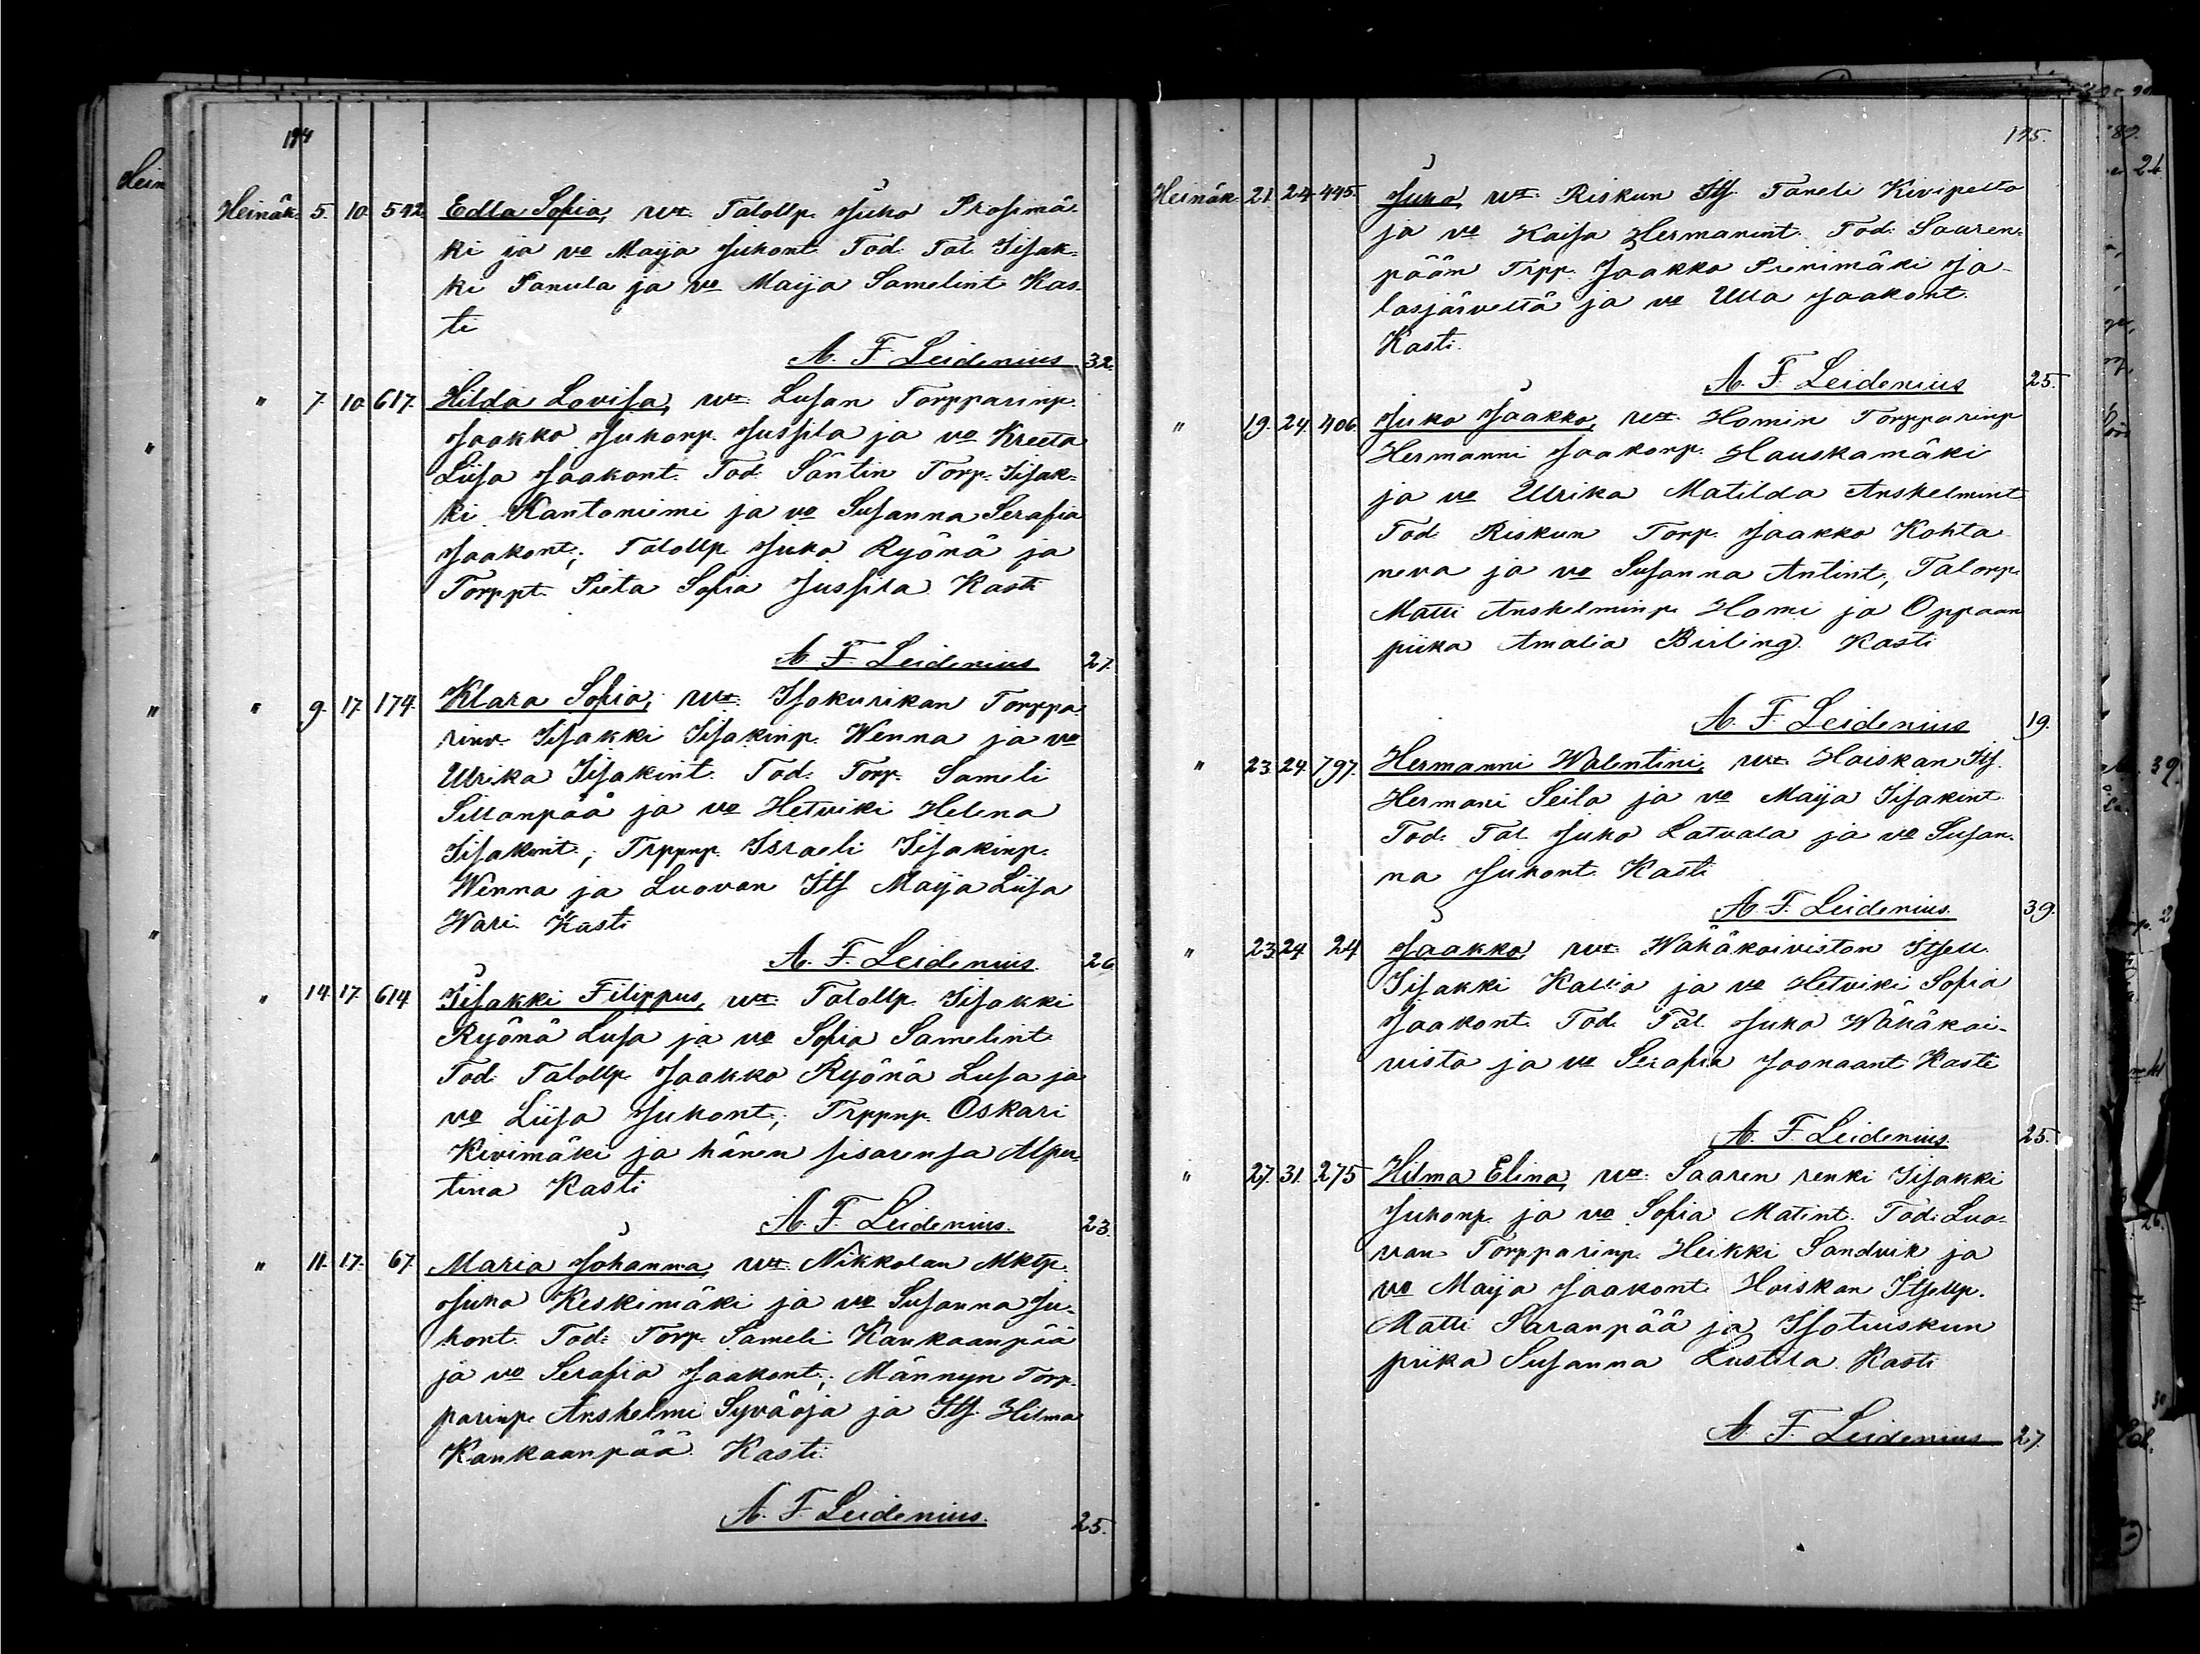 194
Heinäk. 5. 10. 542. Edla Sofia, vt. Talollp. Juho Prosimä-
ki ja vo Maija Juhont. Tod. Tal. Iisak-
ki Panula ja vo Maija Samelint. Kas-
ti
A. F. Leidenius 32.
" 7. 10. 617. Hilda Lovisa, vt. Lusan Torpparinp.
Jaakko Juhonp. Jussila ja vo Kreeta
Liisa Jaakont. Tod. Säntin Torp. Iisak-
ki Kantoniemi ja vo Susanna Serafia
Jaakont.; Talollp. Juho Ryönä ja
Torppt. Pieta Sofia Jussila. Kasti
A. F. Leidenius 27.
" 9. 17. 174. Klara Sofia, vt. Isokurikan Torppa-
rinv. Iisakki Iisakinp. Wenna ja vo
Ulrika Iisakint. Tod. Torp. Sameli
Sillanpää ja vo Hetviki Helena
Iisakint.; Trppnp. Israeli Iisakinp.
Wenna ja Luovan Its. Maija Liisa
Wari. Kasti
A. F. Leidenius. 26
" 14. 17. 614. Iisakki Filippus, vt. Talollp. Iisakki
Ryönä Lusa ja vo Sofia Samelint.
Tod. Talollp. Jaakko Ryönä Lusa ja
vo Liisa Juhont.; Trppnp. Oskari
Kivimäki ja hänen sisarensa Alper-
tina Kasti
A. F. Leidenius. 23.
" 11. 17. 67. Maria Johanna, vt. Nikkolan Mktp.
Juha Keskimäki ja vo Susanna Ju-
hont. Tod. Torp. Sameli Kankaanpää
ja vo Serafia Jaakont.; Männyn Torp-
parinp. Anshelmi Syväoja ja Its. Hilma
Kankaanpää. Kasti.
A. F. Leidenius. 25.
195.
Heinäk. 21. 24. 445. Juho, vt. Riskun Its. Taneli Kivipelto
ja vo Kaisa Hermanint. Tod. Sauren-
pään Trpp. Jaakko Pienimäki Ja-
lasjärveltä ja vo Ulla Jaakont.
Kasti.
A. F. Leidenius 25.
" 19. 24. 406. Juho Jaakko, vt. Homin Torpparinp.
Hermanni Jaakonp. Hauskamäki
ja vo Ulrika Matilda Anshelmint.
Tod. Riskun Torp. Jaakko Kohta-
neva ja vo Susanna Antint., Talonp.
Matti Anshelminp. Homi ja Oppaan
piika Amalia Birling. Kasti
A. F. Leidenius 19.
" 23. 24. 797. Hermanni Walentini, vt. Hoiskan Its.
Hermani Seila ja vo Maija Iisakint.
Tod. Tal. Juho Latvala ja vo Susan-
na Juhont. Kasti
A. F. Leidenius. 39.
" 23. 24. 24 Jaakko, vt. Wähäkoiviston Itsell.
Iisakki Kallio ja vo Hetviki Sofia
Jaakont. Tod. Tal. Juho Wähäkoi-
visto ja vo Serafia Joonaant. Kasti
A. F. Leidenius. 25.
" 27. 31. 275 Hilma Elina, vt. Saaren renki Iisakki
Juhonp. ja vo Sofia Matint. Tod. Luo-
van Torpparinp. Heikki Sandvik ja
vo Maija Jaakont. Hoiskan Itsellp.
Matti Saranpää ja Isotuiskun
piika Susanna Lustila. Kasti
A. F. Leidenius 27.